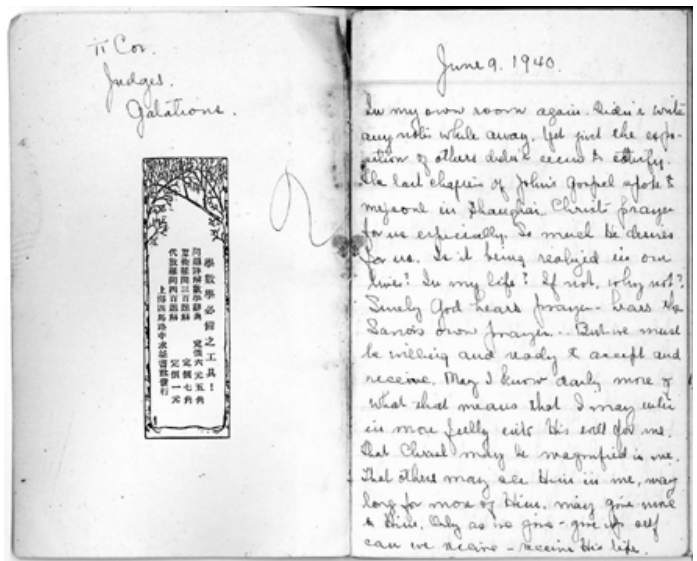 II Cor.
Judges.
Galations.
學數學必備之工具！
問題詳解數學辭典 定價六元五角
算術難問三百題解 定價七角
代數難問四百題解 定價一元
上海四馬路中求益書社發行
June 9. 1940.
In my own room again. Didn't write
any notes while away. Yet just the expo-
sition of others didn't seem to satisfy.
The last chapters of John's Gospel spoke to
me, one in Shanghai. Christ's prayer
for us especially. So much he desires
for us. Is it being realized in our
lives? In my life? If not, why not?
Surely God hears prayer - hears the
own prayer. But we must
be willing and ready to accept and
receive. May I know daily more of
what that means that I may enter
in more fully into His will for me.
That Christ may be magnified in me.
That others may see Him in me, may
long for more of Him, may give more
to Him. Only as we give - give up self
can we receive - receive His life.